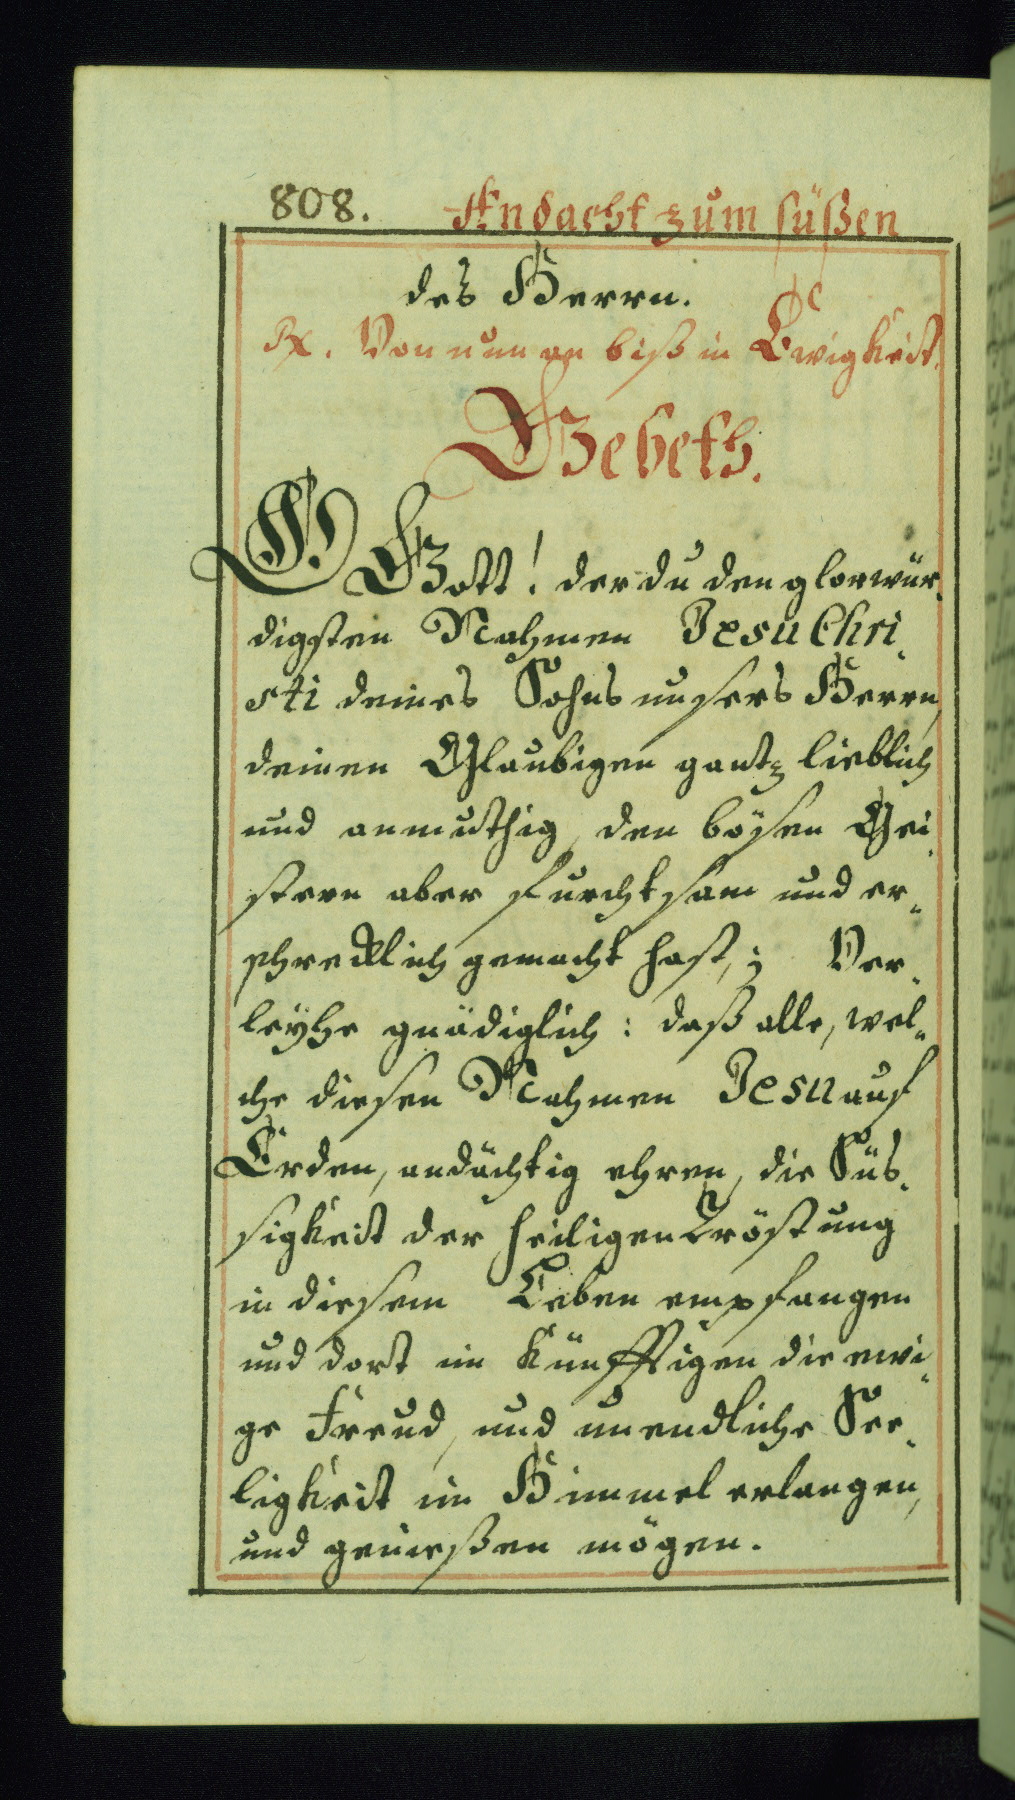 808. Andacht zum süßen
des Herrn.
℟. Von nun an biß in Ewigkeit.
Gebeth.
O Gott! der du den glorwür-
digsten Nahmen Jesu Chri-
sti deines Sohns unsers Herrn,
deinen Glaubigen gantz lieblich
und anmuthig, den bösen Gei-
stern aber furchtsam und er-
schrecklich gemacht hast; Ver-
leyhe gnädiglich: daß alle, wel-
che diesen Nahmen Jesu auf
Erden, andächtig ehren, die Süs-
sigkeit der heiligen Tröstung
in diesem Leben empfangen
und dort im künfftigen die ewi-
ge Freud, und unendliche See-
ligkeit im Himmel erlangen,
und genießen mögen.